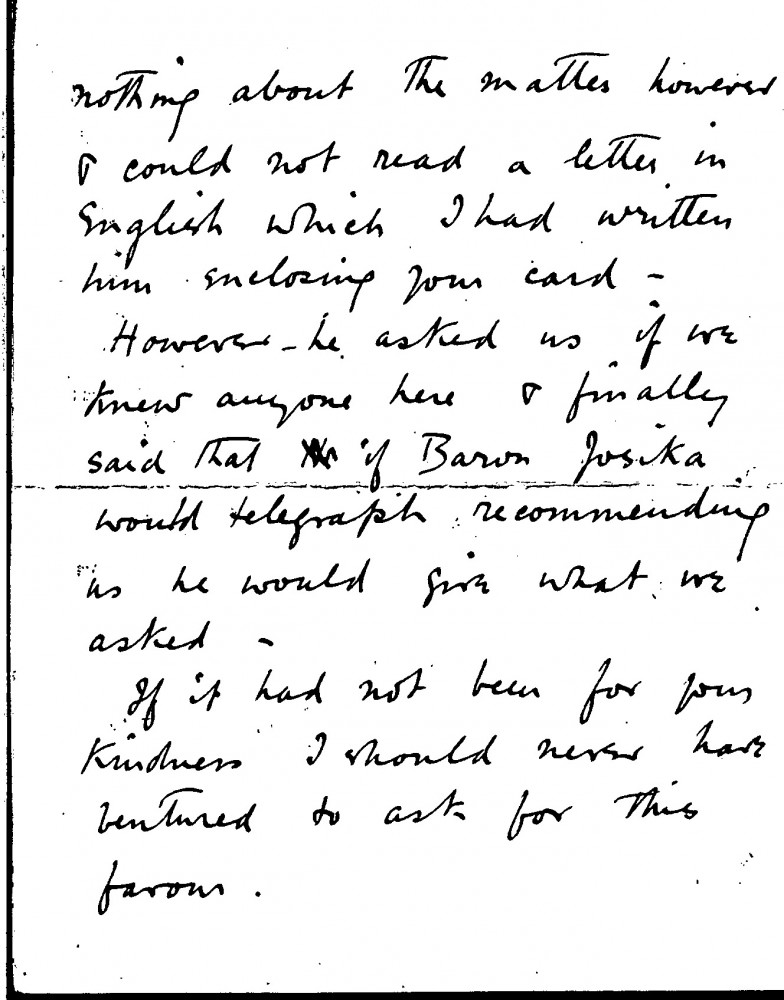 nothing about the matter however
& could not read a letter in
English which I had written
him enclosing your card –
However – he asked us if we
knew anyone here & finally
said that if Baron Josika
would telegraph recommending
us he would give what we
asked –
If it had not been for your
kindness I should never have
ventured to ask for this
favour .